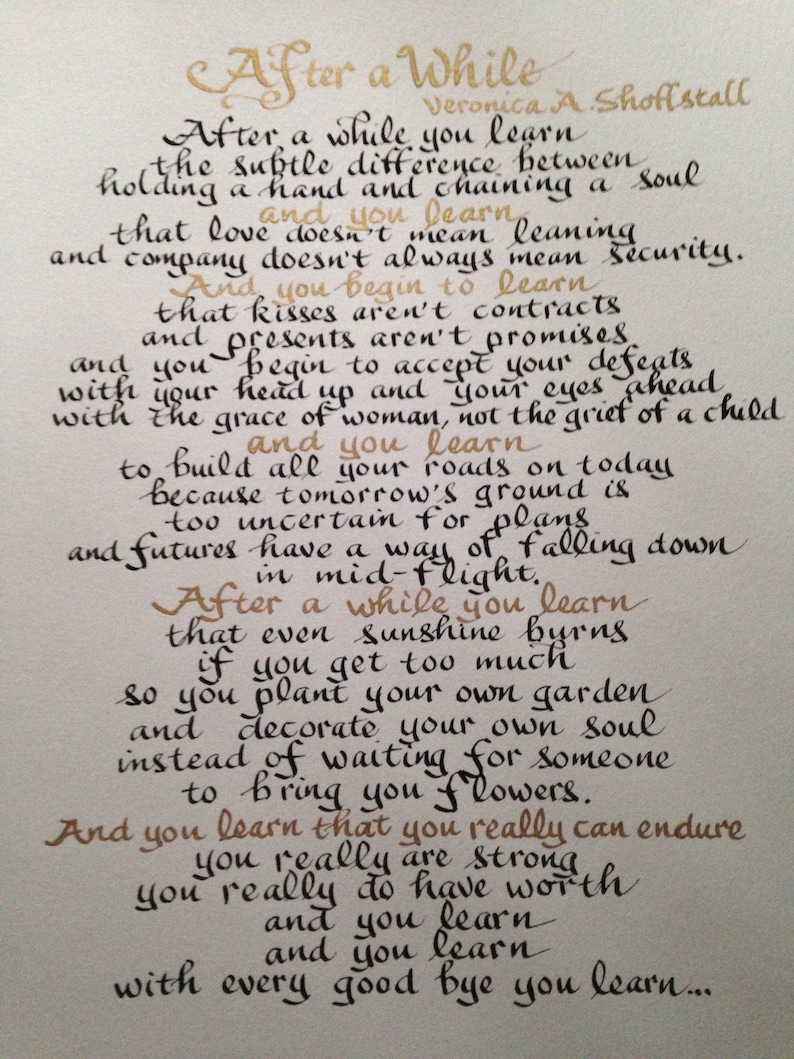 After a While
Veronica A. Shoffstall
After a while you learn
the subtle difference between
holding a hand and chaining a soul
and you learn
that love doesn't mean leaning
and company doesn't always mean security.
And you begin to learn
that kisses aren't contracts
and presents aren't promises
and you begin to accept your defeats
with your head up and your eyes ahead
with the grace of woman, not the grief of a child
and you learn
to build all your roads on today
because tomorrow's ground is
too uncertain for plans
and futures have a way of falling down
in mid-flight.
After a while you learn
that even sunshine burns
if you get too much
so you plant your own garden
and decorate your own soul
instead of waiting for someone
to bring you flowers.
And you learn that you really can endure
you really are strong
you really do have worth
and you learn
and you learn
with every good bye you learn...